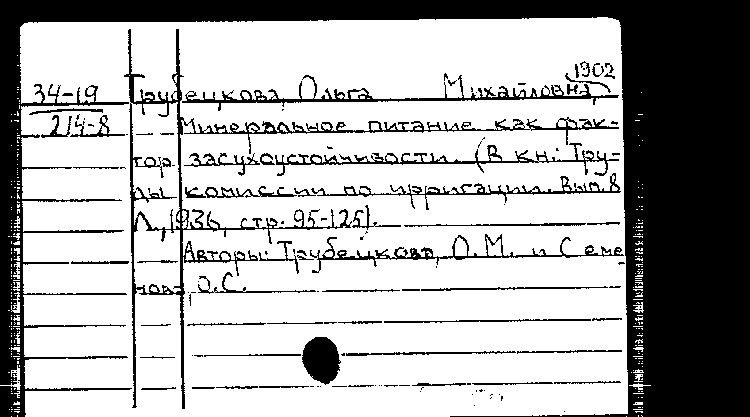 1902
34-19 Трубецкова, Ольга Михайловна,
214-8 Минеральное питание как фак-
тор засухоустойчивости. (В кн: Тру-
ды комиссии по ирригации. Вып. 8
Л., 1936, стр. 95-125).
Авторы: Трубецкова, О.М. и Семе-
нова, О.С.